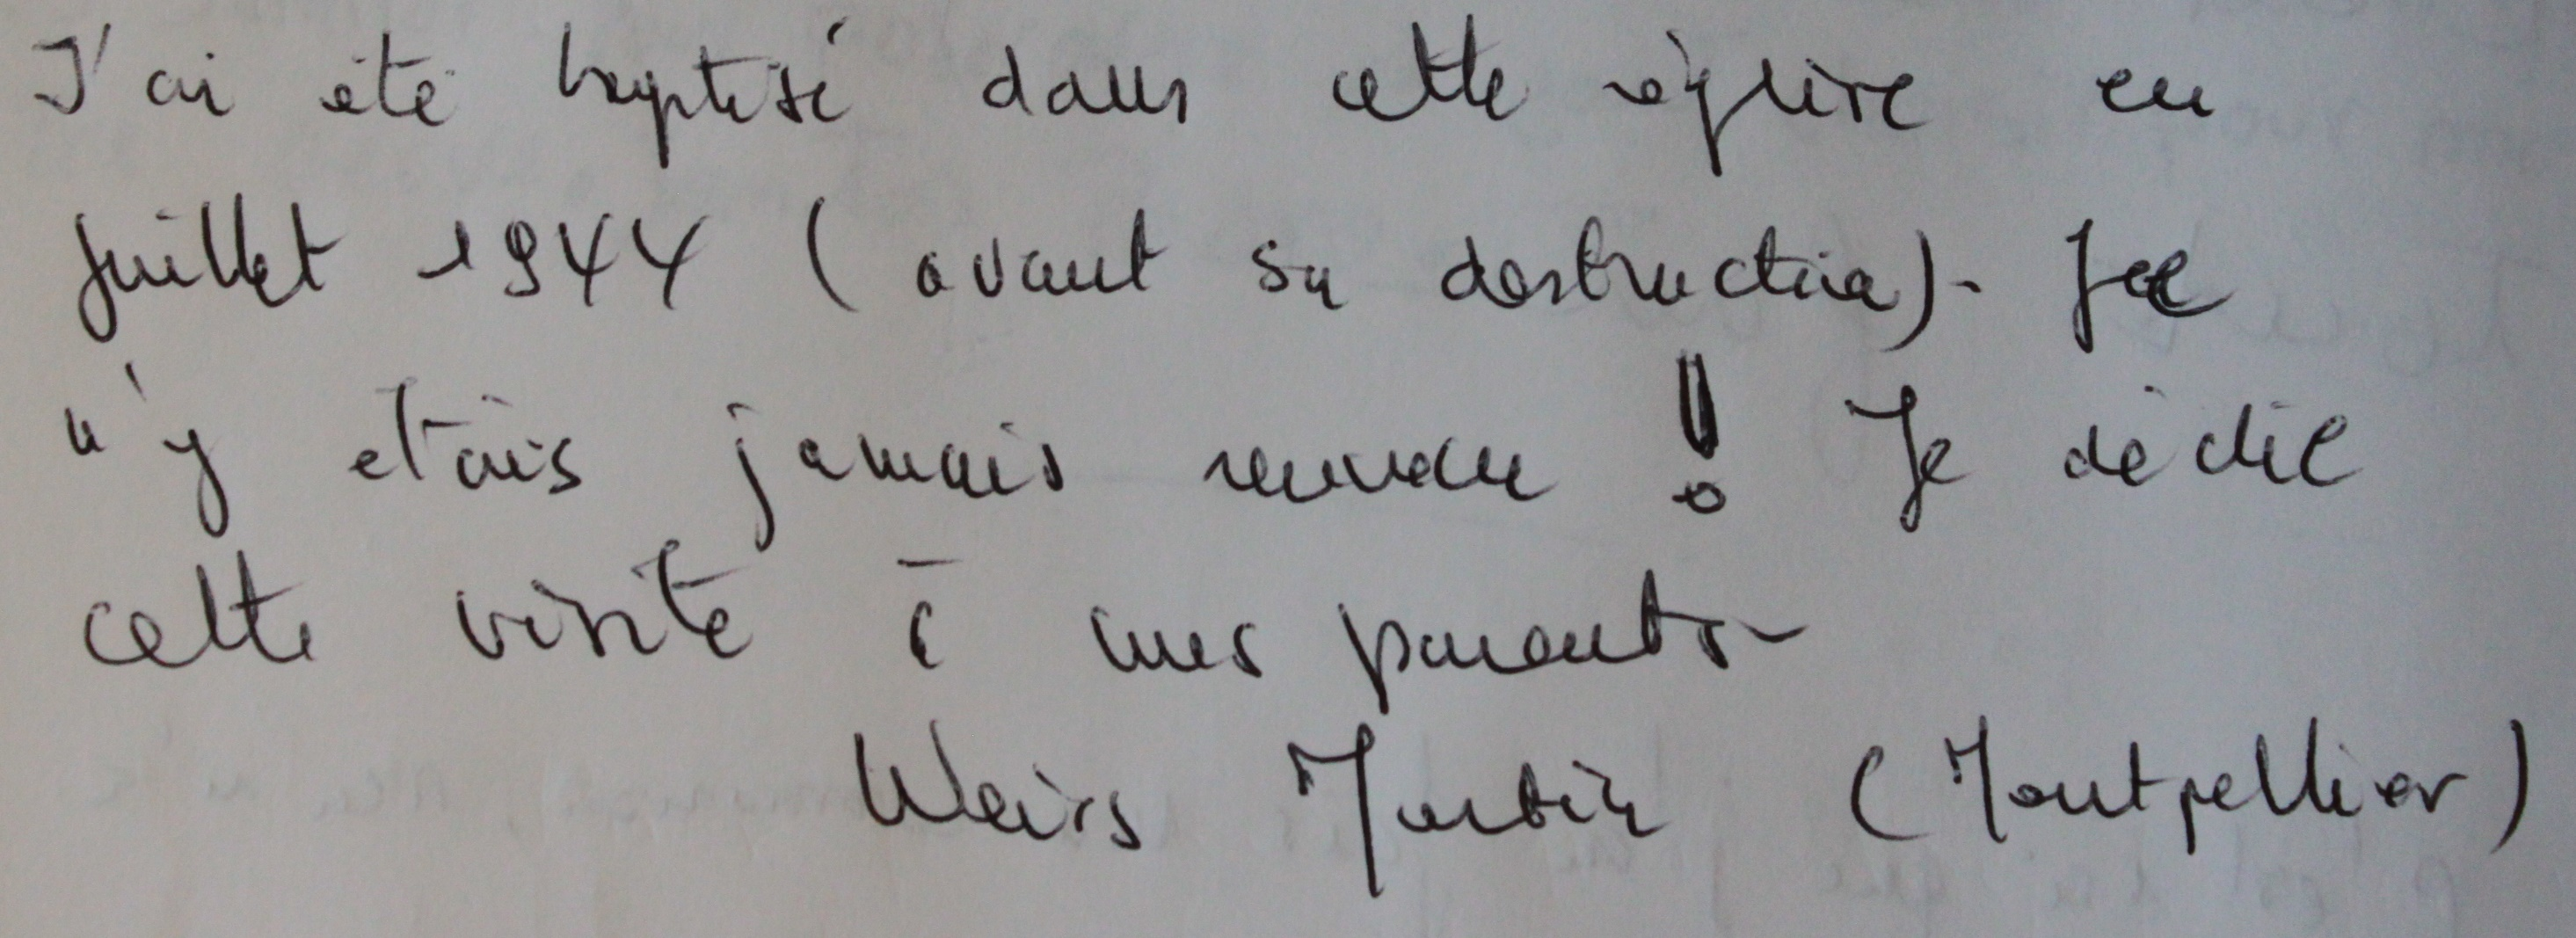 J'ai été baptisé dans cette église en
juillet 1944 (avant sa destruction). Je
n'y étais jamais revenu ! Je dédie
cette visite à mes parents.
Weiss Martin (Montpellier)